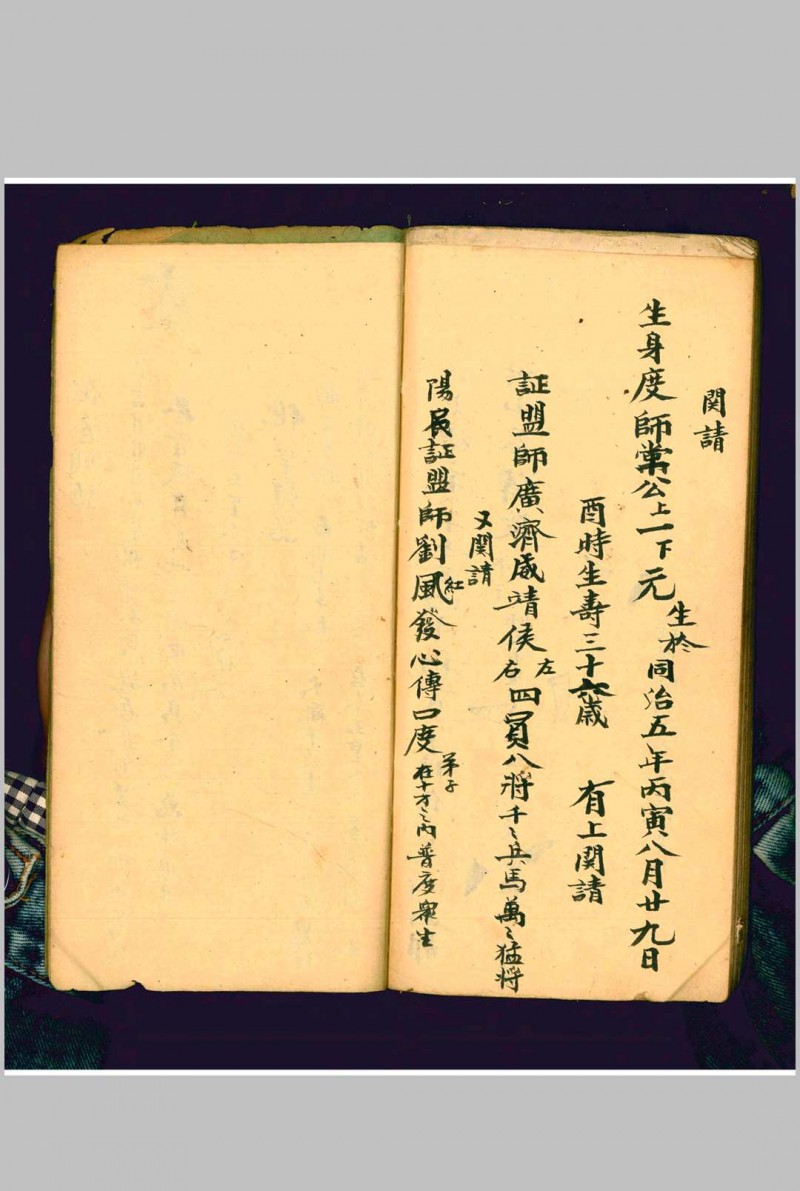 関請
生身度師常公上一下元生於同治五年丙寅八月廿九日
酉時生壽三十六歲 有上関請
証盟師廣濟威靖侯左右四員八將千〻兵馬萬〻猛將
又関請
陽民証盟師劉風紅發心傳口度弟子在十方〻內普度衆生